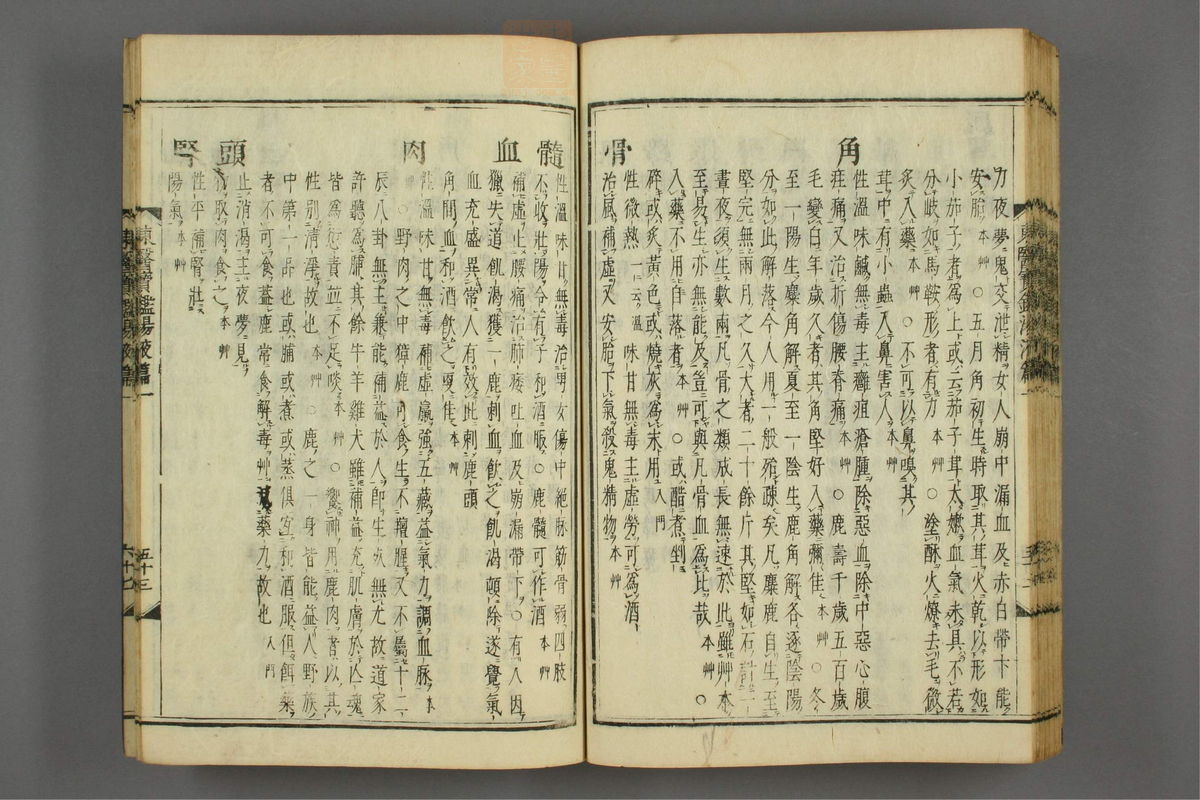 力夜夢鬼交泄精女人崩中漏血及赤白帶下能
安胎本艸○五月角初生時取其茸火乾以形如
小茄子者爲上或云茄子茸太嫩血氣未具不若
分岐如馬鞍形者有力本艸○塗酥火燎去毛微
炙入藥本艸○不可以鼻嗅其
茸中有小蟲入鼻害人本艸
角
性溫味鹹無毒主癰疽瘡腫除惡血除中惡心腹
疰痛又治折傷腰脊痛本艸○鹿壽千歲五百歲
毛變白年歲久者其角堅好入藥彌佳本艸○冬
至一陽生麋角解夏至一陰生鹿角解各逐陰陽
分如此解落今人用一般殆疎矣凡麋鹿自生至
堅完無兩月之久大者二十餘斤其堅如石計一
晝夜須生數兩凡骨之類成長無速於此雖艸木
至易生亦無能及豈可與凡骨血爲比哉本艸○
入藥不用自落者本艸○或醋煮剉
碎或炙黃色或燒灰爲末用入門
骨
性微熱一云溫味甘無毒主虛勞可爲酒
治風補虛又安胎下氣殺鬼精物本艸
髓
性溫味甘無毒治男女傷中絕脉筋骨弱四肢
不收壯陽令有子和酒服○鹿髓可作酒本艸
血
補虛止腰痛治肺痿吐血及崩漏帶下○有人因
獵失道飢渴獲一鹿刺血飮之飢渴頓除遂覺氣
血充盛異常人有效此刺鹿頭
角間血和酒飮之更佳本艸
肉
性溫味甘無毒補虛羸強五藏益氣力調血脉本
艸○野肉之中獐鹿可食生不羶腥又不屬十二
辰八卦無主兼能補益於人卽生死無尤故道家
許聽爲脯其餘牛羊雞犬雖補益充肌膚於亡魂
皆爲愆責並不足啖本艸○饗神用鹿肉者以其
性別淸淨故也本艸○鹿之一身皆能益人野族
中第一品也或脯或煮或蒸俱宜和酒服但餌藥
者不可食蓋鹿常食解毒艸減藥力故也入門
頭
止消渴主夜夢見
物取肉食之本艸
腎
性平補腎壯
陽氣本艸
東醫寶鑑湯液篇一
五十三